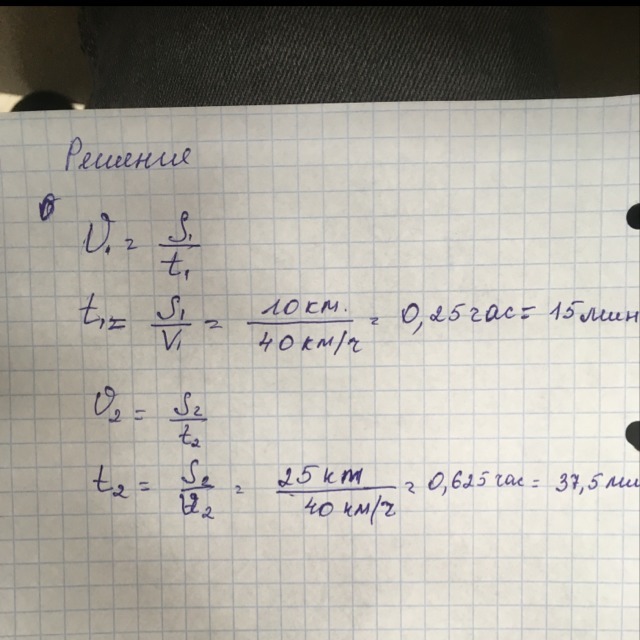 Решение
V₁ = S₁/t₁
t₁ = S₁/V₁ = 10 км./40 км/ч = 0,25 час = 15 мин
V₂ = S₂/t₂
t₂ = S₂/V₂ = 25 км/40 км/ч = 0,625 час = 37,5 ми